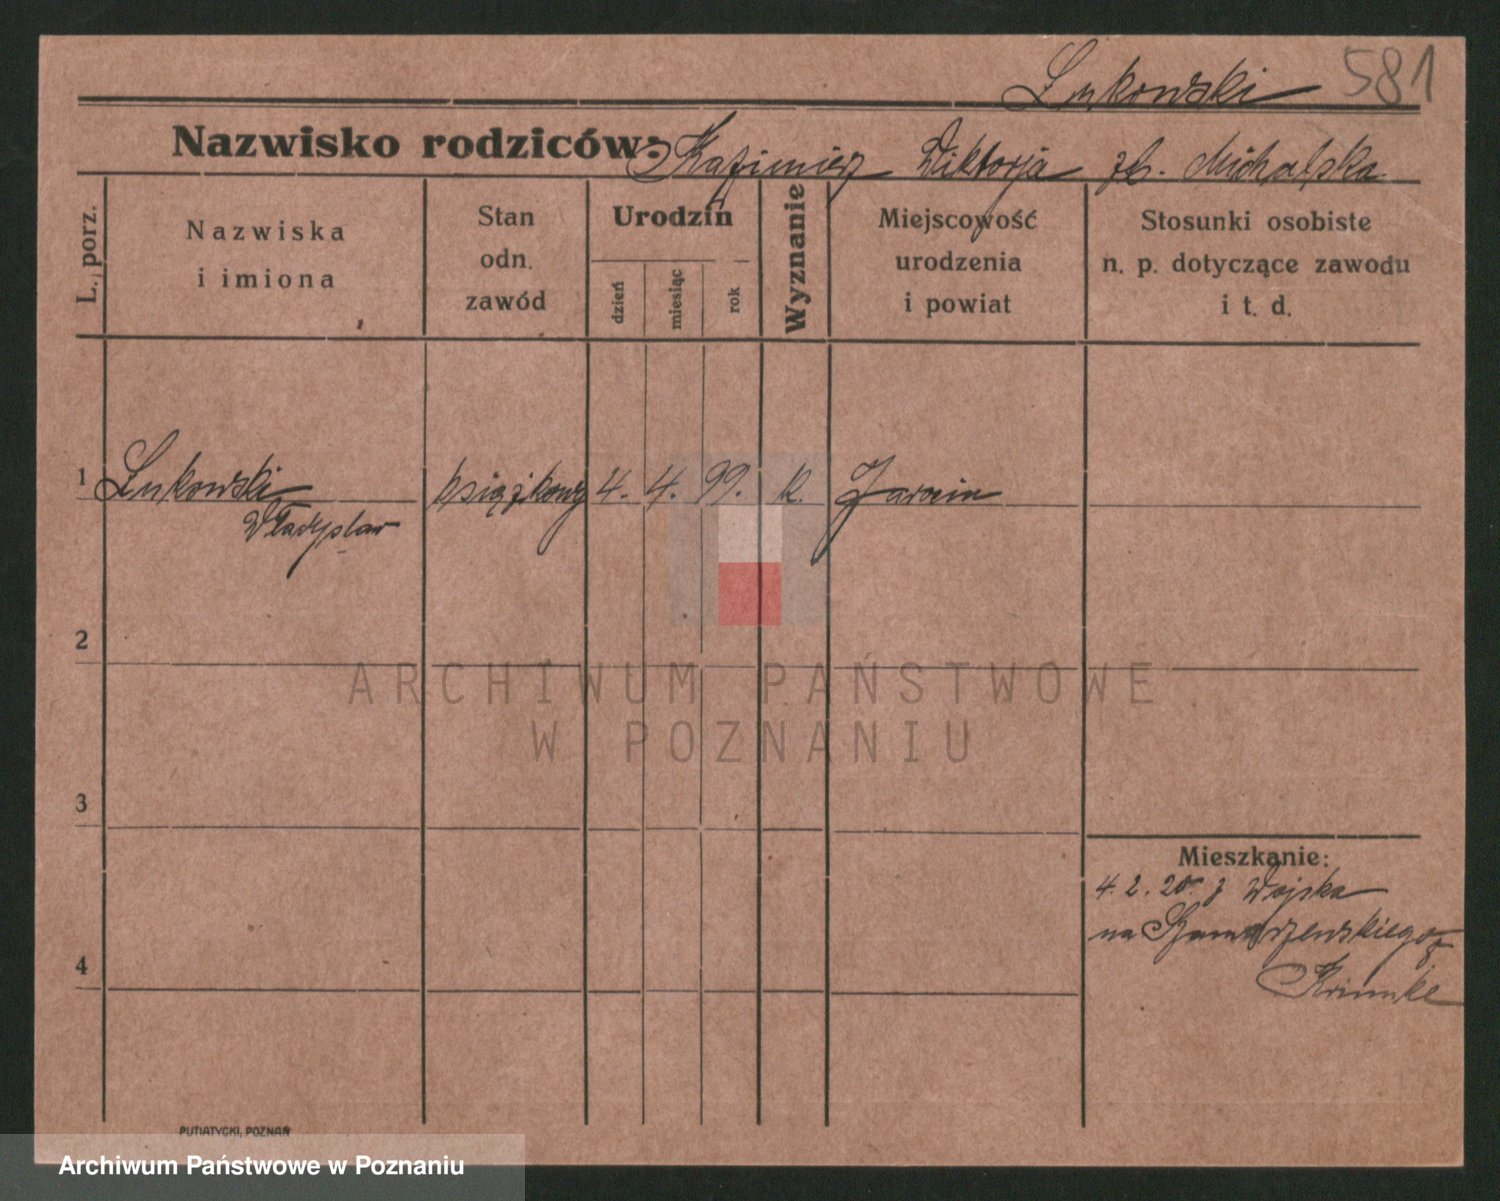 Łukowski 581
Nazwisko rodziców: Kazimierz Wiktorja zb. Michalska
L. porz.
Nazwiska
i imiona
Stan
odn.
zawód
Urodzin
dzień
miesiąc
rok
Wyznanie
Miejscowość
urodzenia
i powiat
Stosunki osobiste
n. p. dotyczące zawodu
i t. d.
1 Łukowski książkowy 4. 4. 99. k. Jarocin
Władysław
2
ARCHIWUM PAŃSTWOWE
W POZNANIU
3
Mieszkanie:
4. 2. 20. z Wojska
na
4
PUTIATYCKI, POZNAŃ
Archiwum Państwowe w Poznaniu